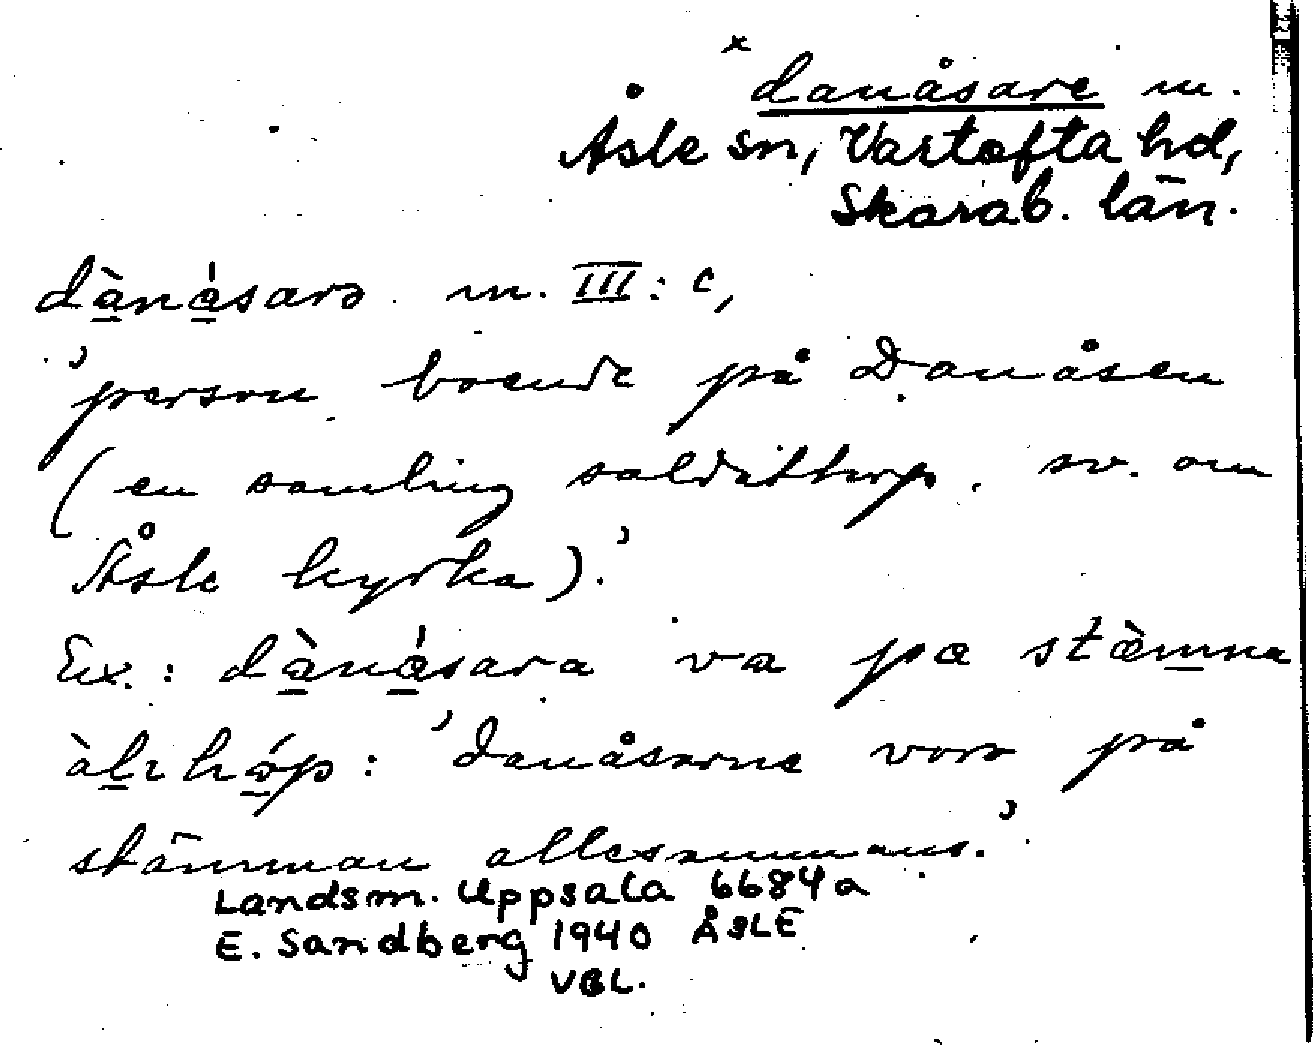 × danåsare m.
Åsle sn, Vartofta hd,
Skarab. län.
dànásarə m. III: c,
'person boende på Danåsen
(en samling soldattorp, sv. om
Åsle kyrka).'
Ex.: dànásara va pa stæ̀mna
àlıhóp: 'danåsarne voro på
stämman allesammans.'
Landsm. Uppsala 6684a
E. Sandberg 1940 ÅSLE
VGL.